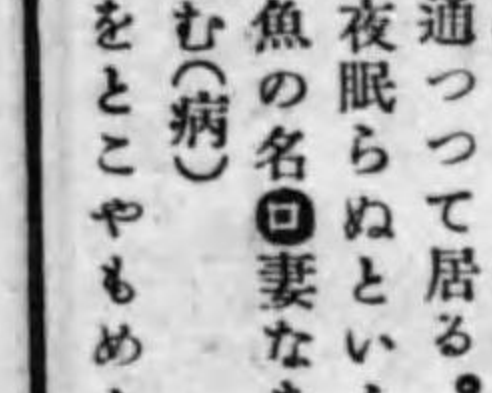 通つつて居る。
夜眠らぬとい
魚の名㋺妻な
む(病)
をとこやもめ